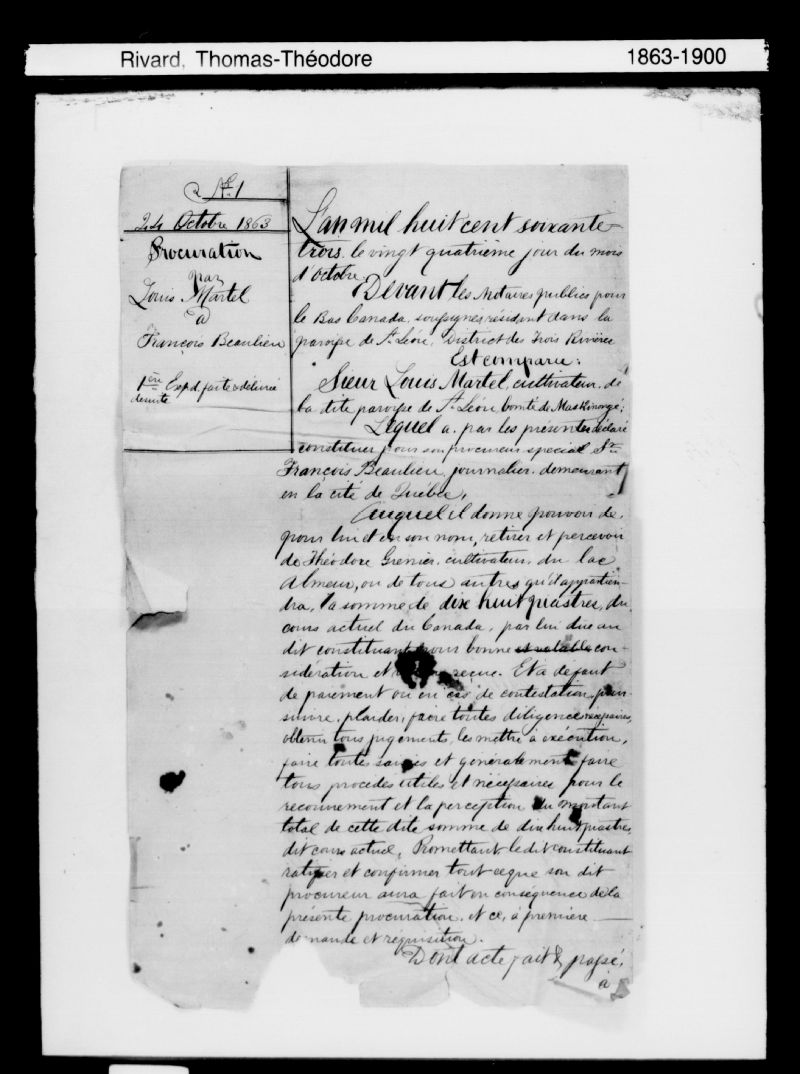 Rivard, Thomas-Théodore
1863-1900
No. 1
24 Octobre 1863
Procuration
par
Louis Martel
à
François Beaulieu
1ère Expd. faite & délivrée
de suite
L'an mil huit cent soixante-
trois, le vingt quatrième jour du mois
d'Octobre.
Devant les Notaires publics pour
le Bas Canada, soussignés, résident dans la
paroisse de St. Léon, District des Trois Rivières
Est comparu:
Sieur Louis Martel, cultivateur, de
la dite paroisse de St. Léon comté de Maskinongé;
Lequel a, par les présentes déclaré
constituer pour son procureur spécial Sr.
François Beaulieu, journalier, demeurant
en la cité de Québec,
Auquel il donne pouvoir de,
pour lui et en son nom, retirer et percevoir
de Théodore Grenier, cultivateur, du lac
Almeur, ou de tous autres qu'il appartien-
dra, la somme de dix huit piastres, du
cours actuel du Canada, par lui due au
dit constituant pour bonne et valable con-
sidération et reçue. Et à défaut
de paiement ou en cas de contestation, pour-
suivre, plaider, faire toutes diligences nécessaires,
obtenir tous jugements, les mettre à exécution,
faire toutes saisies et généralement faire
tous procédés utiles et nécessaires pour le
recouvrement et la perception du montant
total de cette dite somme de dix huit piastres,
dit cours actuel, Promettant le dit constituant
ratifier et confirmer tout ce que son dit
procureur aura fait en conséquence de la
présente procuration, et ce, à première
demande et réquisition.
Dont acte fait & passé,
à